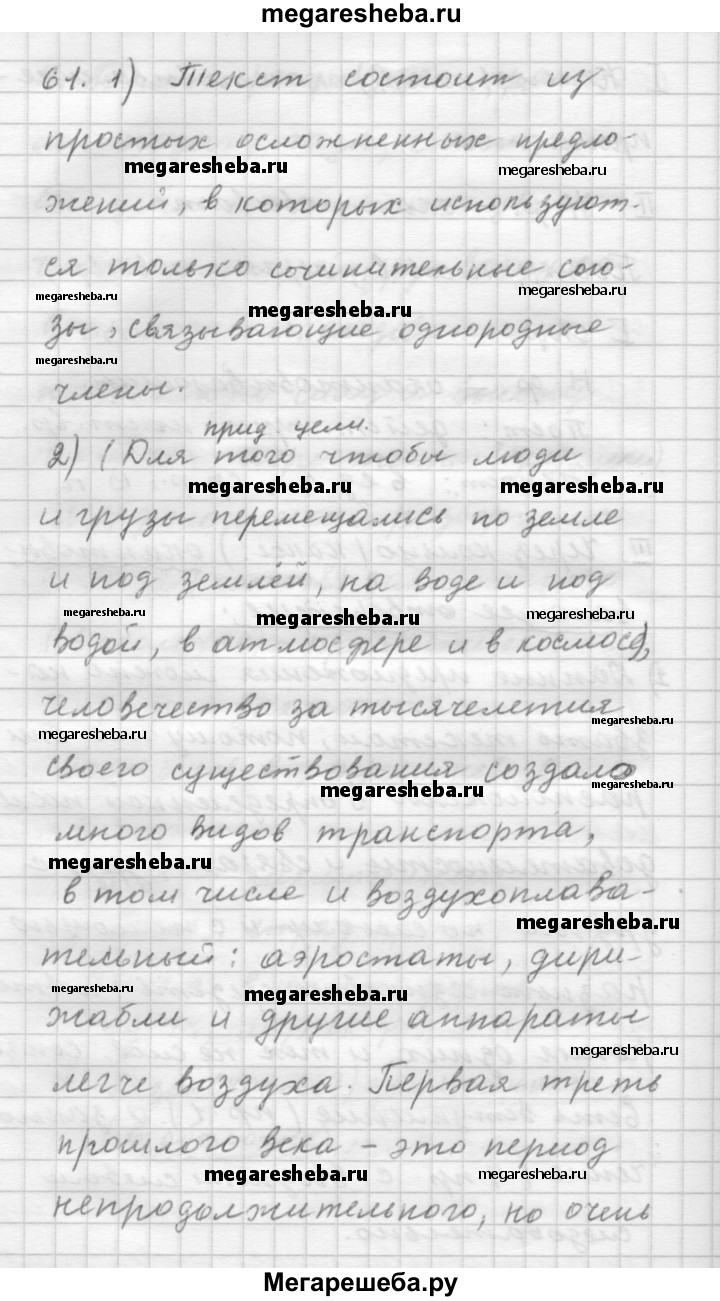 megaresheba.ru
61. 1) Текст состоит из
простых осложненных предло-
megaresheba.ru megaresheba.ru
жений, в которых используют-
ся только сочинительные сою-
megaresheba.ru megaresheba.ru megaresheba.ru
зы, связывающие однородные
megaresheba.ru
члены.
прид. цели.
2) (Для того чтобы люди
megaresheba.ru megaresheba.ru
и грузы перемещались по земле
и под землёй, на воде и под
megaresheba.ru megaresheba.ru megaresheba.ru
водой, в атмосфере и в космосе),
человечество за тысячелетия
megaresheba.ru megaresheba.ru
своего существования создало
megaresheba.ru megaresheba.ru
много видов транспорта,
megaresheba.ru
в том числе и воздухоплава-
megaresheba.ru
тельный: аэростаты, дири-
megaresheba.ru megaresheba.ru
жабли и другие аппараты
megaresheba.ru
легче воздуха. Первая треть
прошлого века – это период
megaresheba.ru megaresheba.ru
непродолжительного, но очень
Мегарешеба.ру